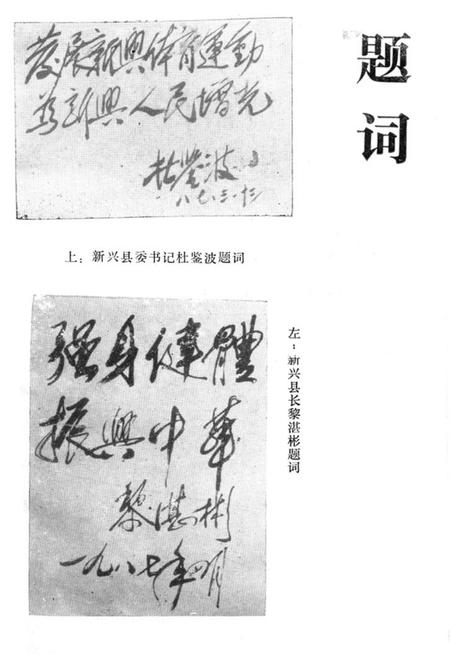 题词
發展新興体育運動
为新興人民增光
杜鉴波
八七.三.十三
上：新兴县委书记杜鉴波题词
强身健體
振興中華
黎湛彬
一九八七年四月
左：新兴县长黎湛彬题词